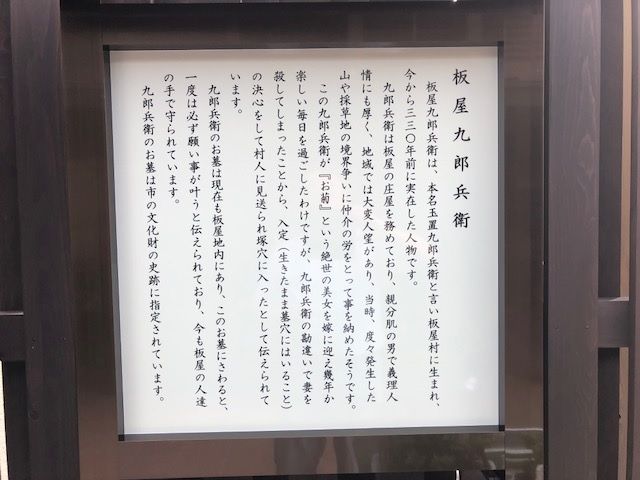 板屋九郎兵衛
板屋九郎兵衛は、本名玉置九郎兵衛と言い板屋村に生まれ、
今から三三〇年前に実在した人物です。
九郎兵衛は板屋の庄屋を務めており、親分肌の男で義理人
情にも厚く、地域では大変人望があり、当時、度々発生した
山や採草地の境界争いに仲介の労をとって事を納めたそうです。
この九郎兵衛が『お菊』という絶世の美女を嫁に迎え幾年か
楽しい毎日を過ごしたわけですが、九郎兵衛の勘違いで妻を
殺してしまったことから、入定（生きたまま墓穴にはいること）
の決心をして村人に見送られ塚穴に入ったとして伝えられて
います。
九郎兵衛のお墓は現在も板屋地内にあり、このお墓にさわると、
一度は必ず願い事が叶うと伝えられており、今も板屋の人達
の手で守られています。
九郎兵衛のお墓は市の文化財の史跡に指定されています。